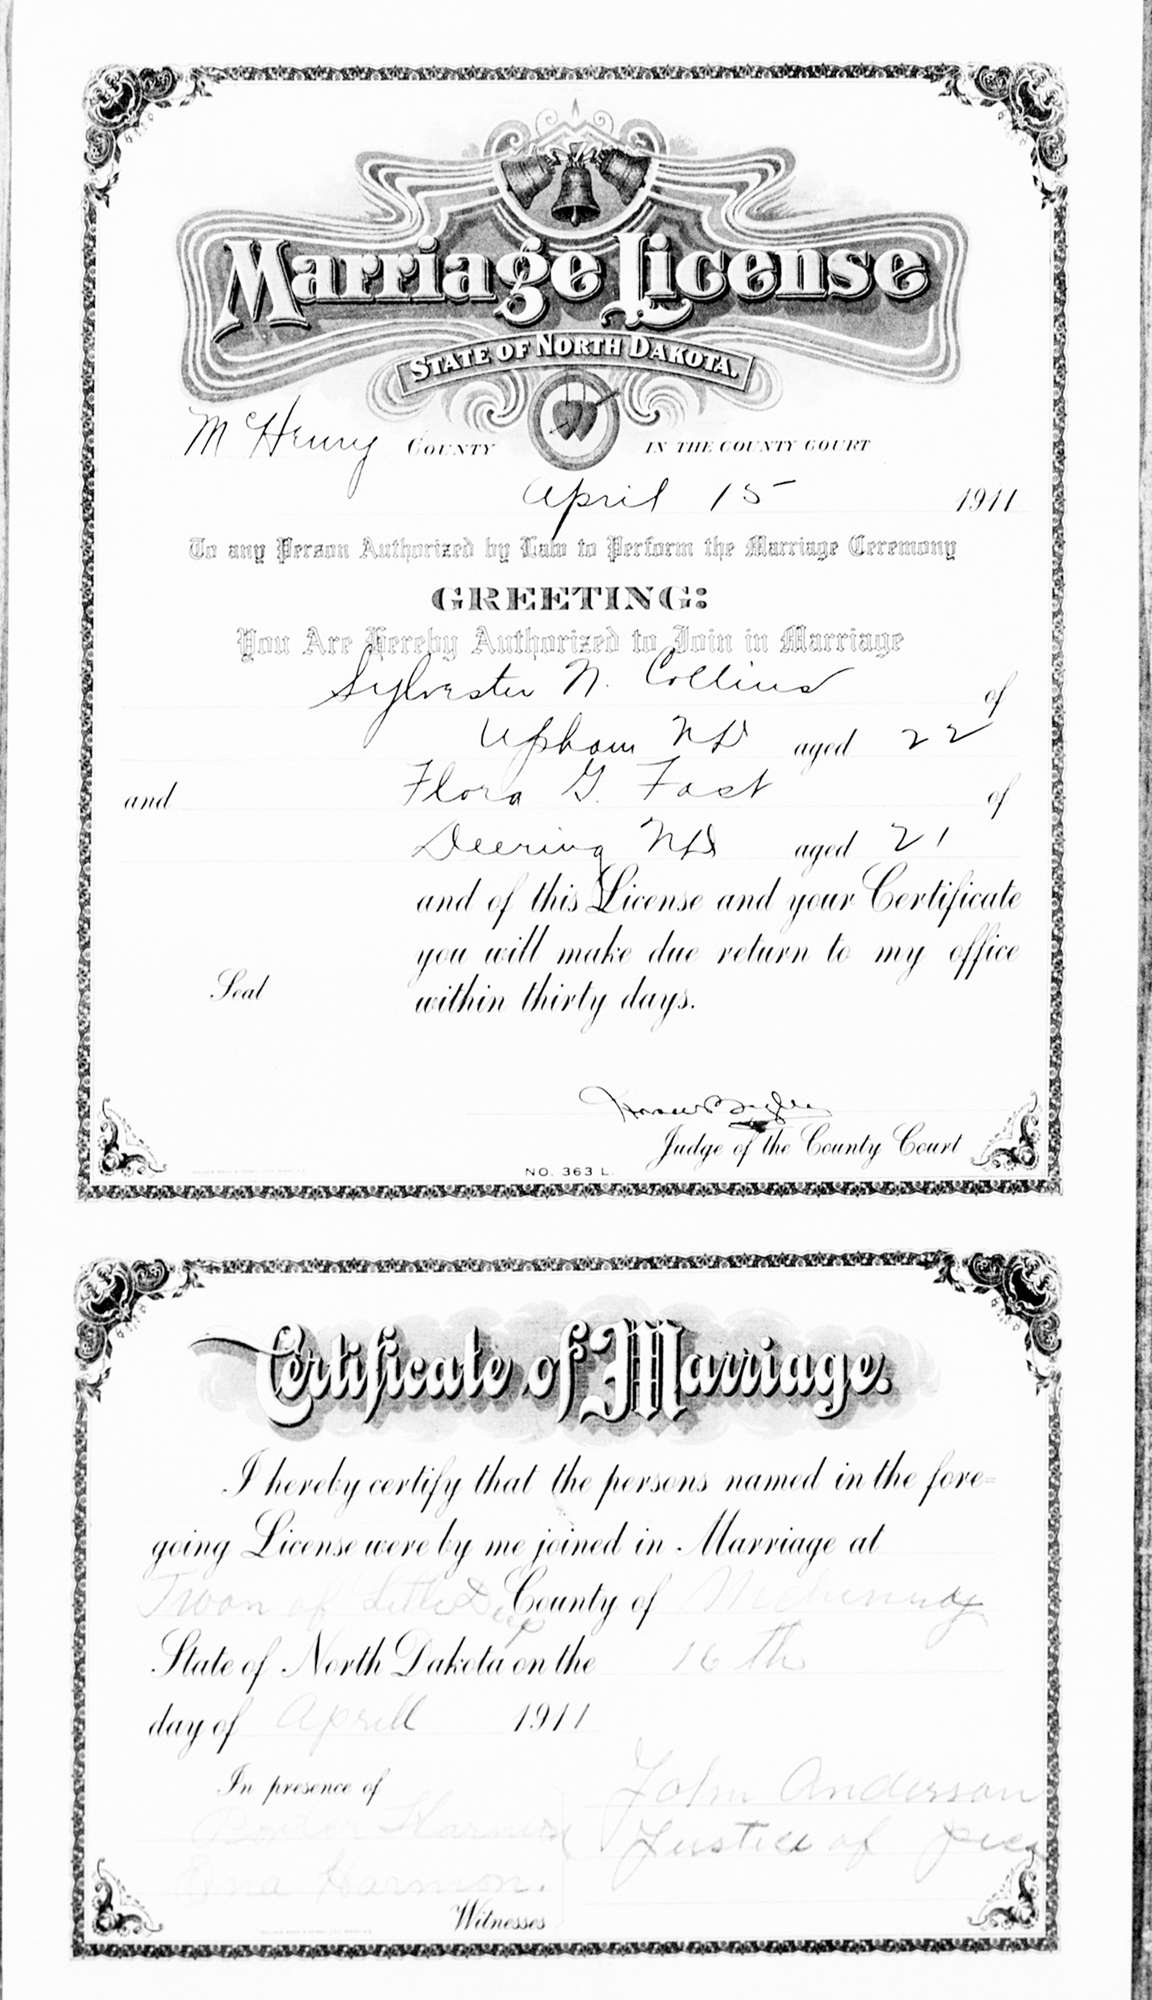 Marriage License
STATE OF NORTH DAKOTA.
McHenry COUNTY IN THE COUNTY COURT
April 15 1911
To any Person Authorized by Law to Perform the Marriage Ceremony
GREETING:
You Are Hereby Authorized to Join in Marriage
Sylvester N. Collins of
Upham ND aged 22
and Flora G. Fast of
Deering ND aged 21
and of this License and your Certificate
you will make due return to my office
Seal within thirty days.
Judge of the County Court
NO. 363 L.
Certificate of Marriage.
I hereby certify that the persons named in the fore=
going License were by me joined in Marriage at
Twon of Little Deep County of Mchenry
State of North Dakota on the 16 th
day of Aprill 1911
In presence of John Anderson
Harmon Justice of
Ona Harmon.
Witnesses